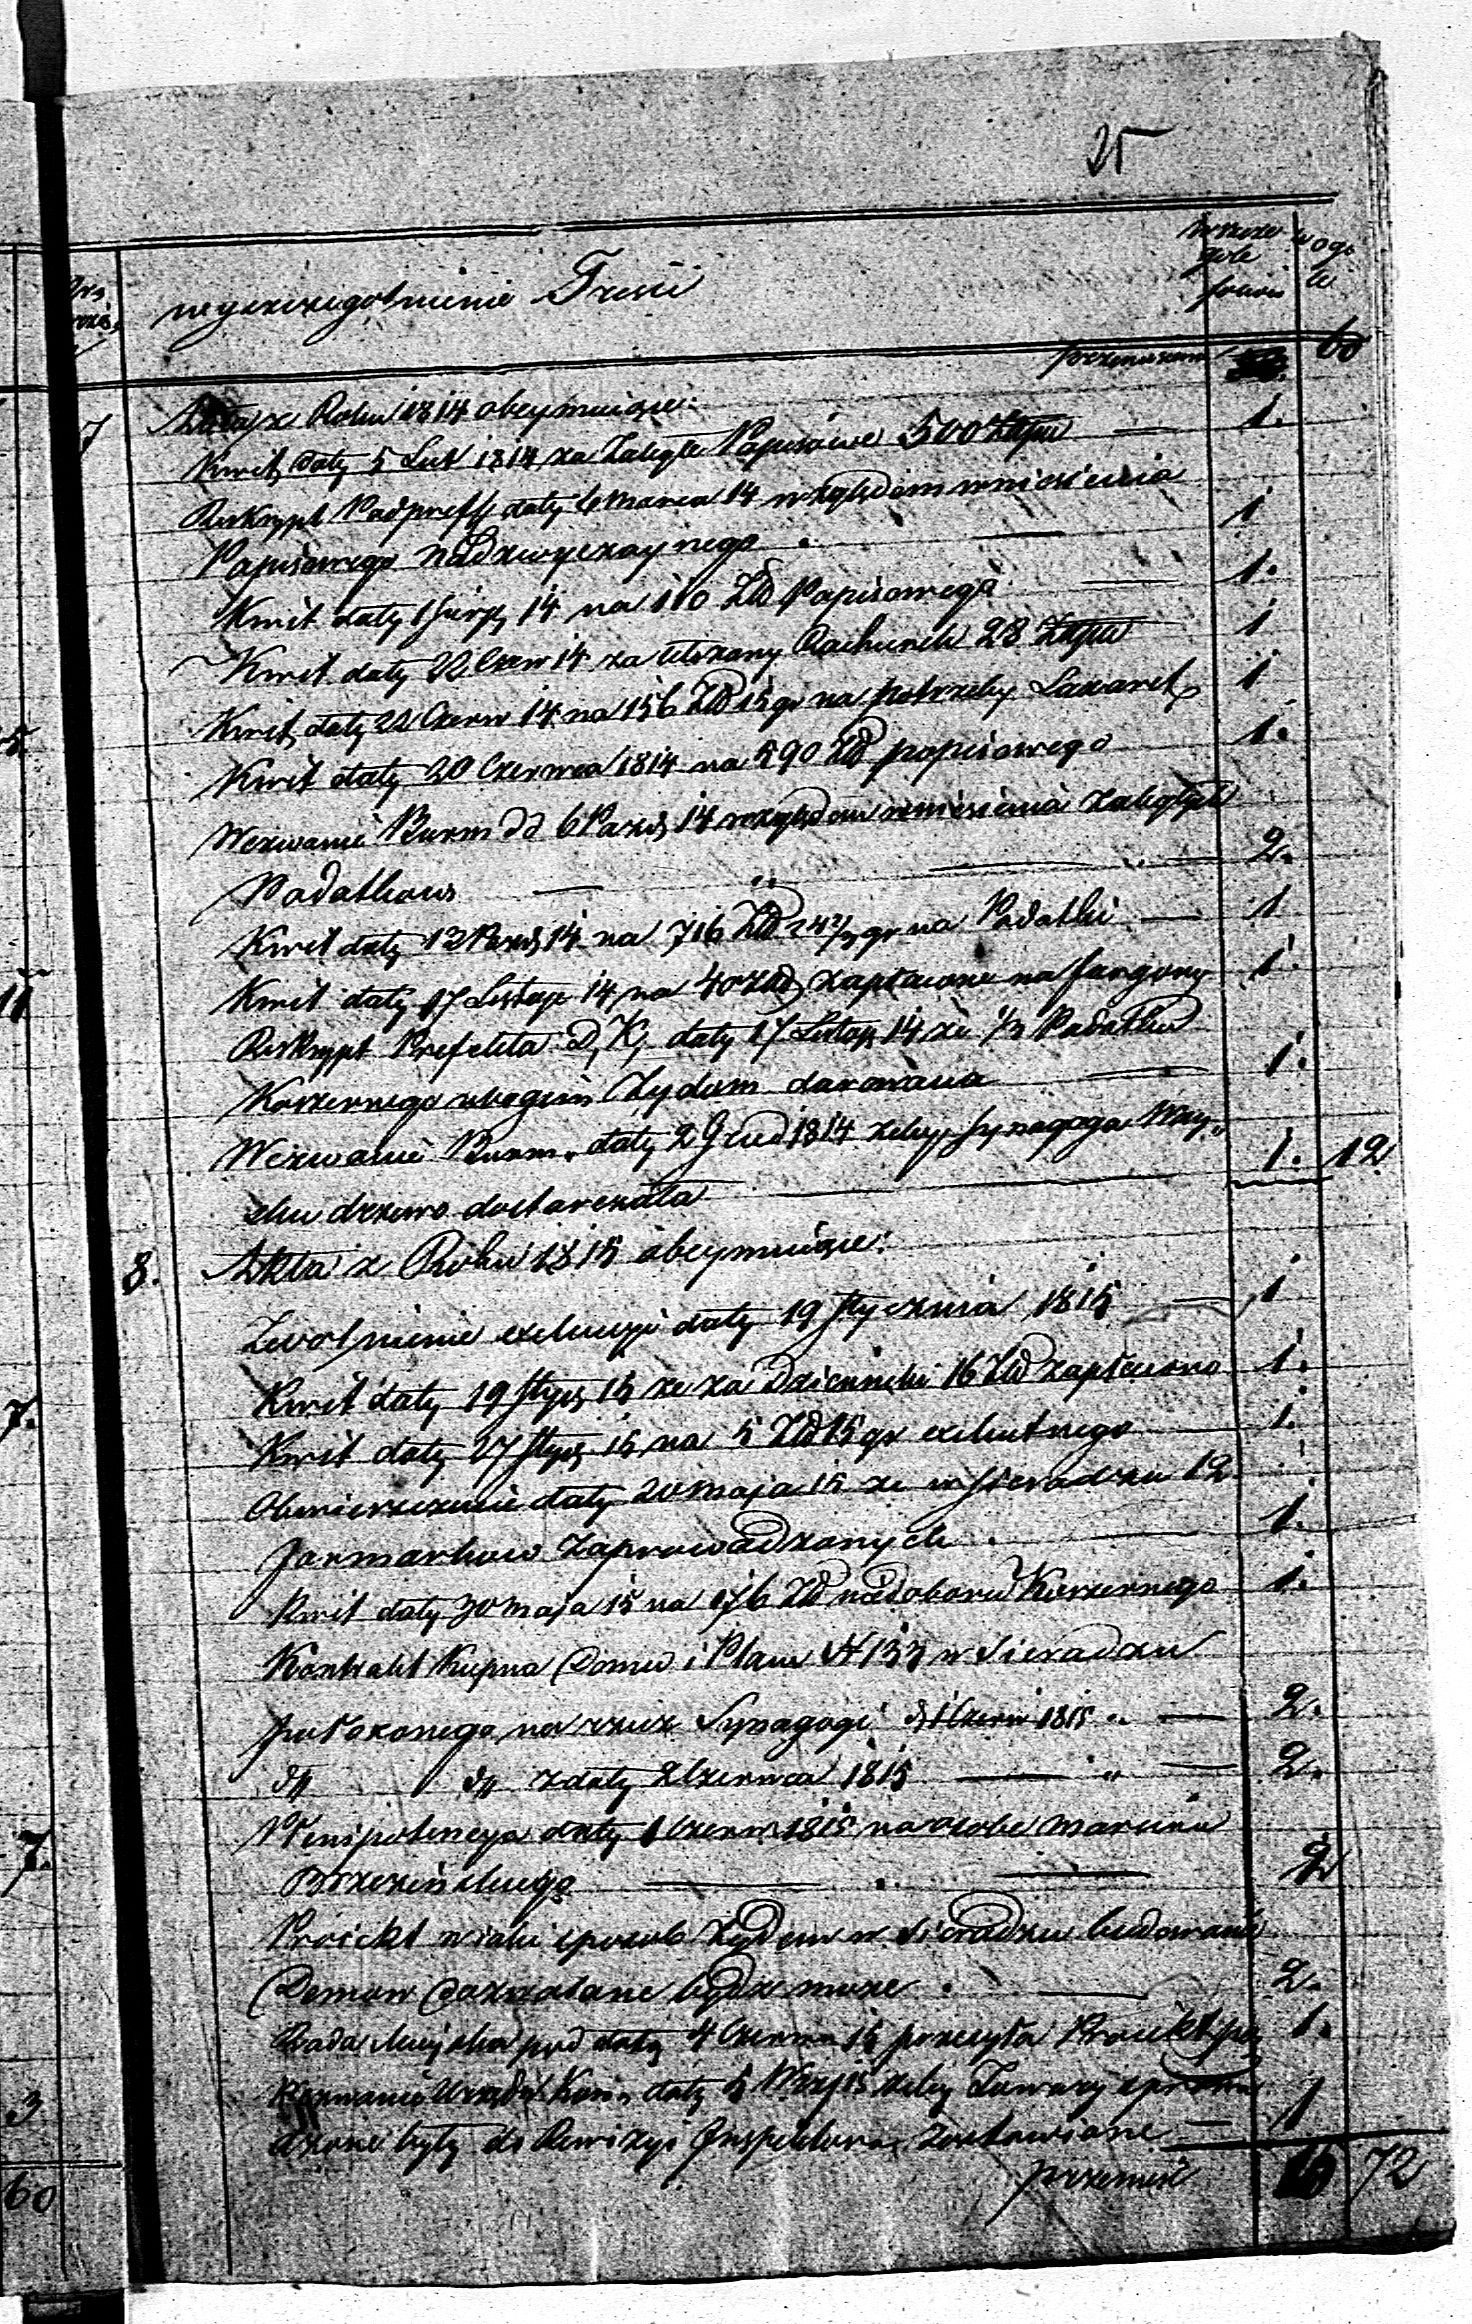 25
wyszczegolnienie Tresci
w szcze
gole
w ogo
le
przenieszono
60
7 Akta z Roku 1814 obeymuiące:
Kwit daty 5 Lut 1814 za Zaległe Papisowe 500 Złpu — 1.
Reskrypt Podpreff daty 6 Marca 14 względem wniesienia
Papisowego nadzwyczaynego — 1
Kwit daty 1 Sierp 14 na 110 Zł Papisowego — 1.
Kwit daty 22 Czerw 14 za Rachunek 28 Złpu 1
Kwit daty 22 Czerw 14 na 156 Zł 15 gr na potrzeby Lazaret 1
Kwit daty 20 Czerwca 1814 na 590 Zł papisowego 1.
Wezwanie Burm dd 6 Paźd 14 względem wniesienia zaległych
Podatkow — 2.
Kwit daty 12 Paźd 14 na 716 Zł gr na Podatki — 1
Kwit daty 17 Listop 14 na 40 Zł zapłacone na furgony 1.
Reskrypt Prefekta D. K. daty 17 Listop 14 że 1/3 Podatku
Koszernego ubogim Żydom darowana — 1.
Wezwanie Burm. daty 2 Grud 1814 żeby Synagoga Woy„
sku drzewo dostarczała 1. 12
8. Akta z Roku 1815 obeymuiące:
Zwolnienie exekucyi daty 19 Stycznia 1815 — 1
Kwit daty 19 Stycz 15 że za Dzienniki 16 Zł zapłacono 1.
Kwit daty 27 Stycz 15 na 5 Zł 15 gr exekutnego 1.
Obwieszczenie daty 20 Maja 15 że w Sieradzu 12
Jarmarkow Zaprowadzonych — 1.
Kwit daty 30 Maja 15 na 176 Zł niedoboru Koszernego 1.
Kontrakt Kupna Domu i Placu N 133 w Sieradzu
położonego na rzecz Synagogi d 1 Czerw 1815 — 2.
d„ d„ z daty 2 Czerwca 1815 — 2.
Plenipotencya daty 1 Czerw 1815 na osobe Marcina
Brzezińskiego — 2
Proiekt w iaki sposob Żydom w Sieradzu budowanie
Domow Dozwolane bydz może — 2.
Rada Mieyska pod datą 4 Czerwca 15 przesyła Proiekt 1.
Wezwanie Urzędu Kons. daty 5 15 żeby Towary sprowa
dzone były do Rewizyi Inspektora zostawione — 1
przenieść 16 72
7.
7.
3
60